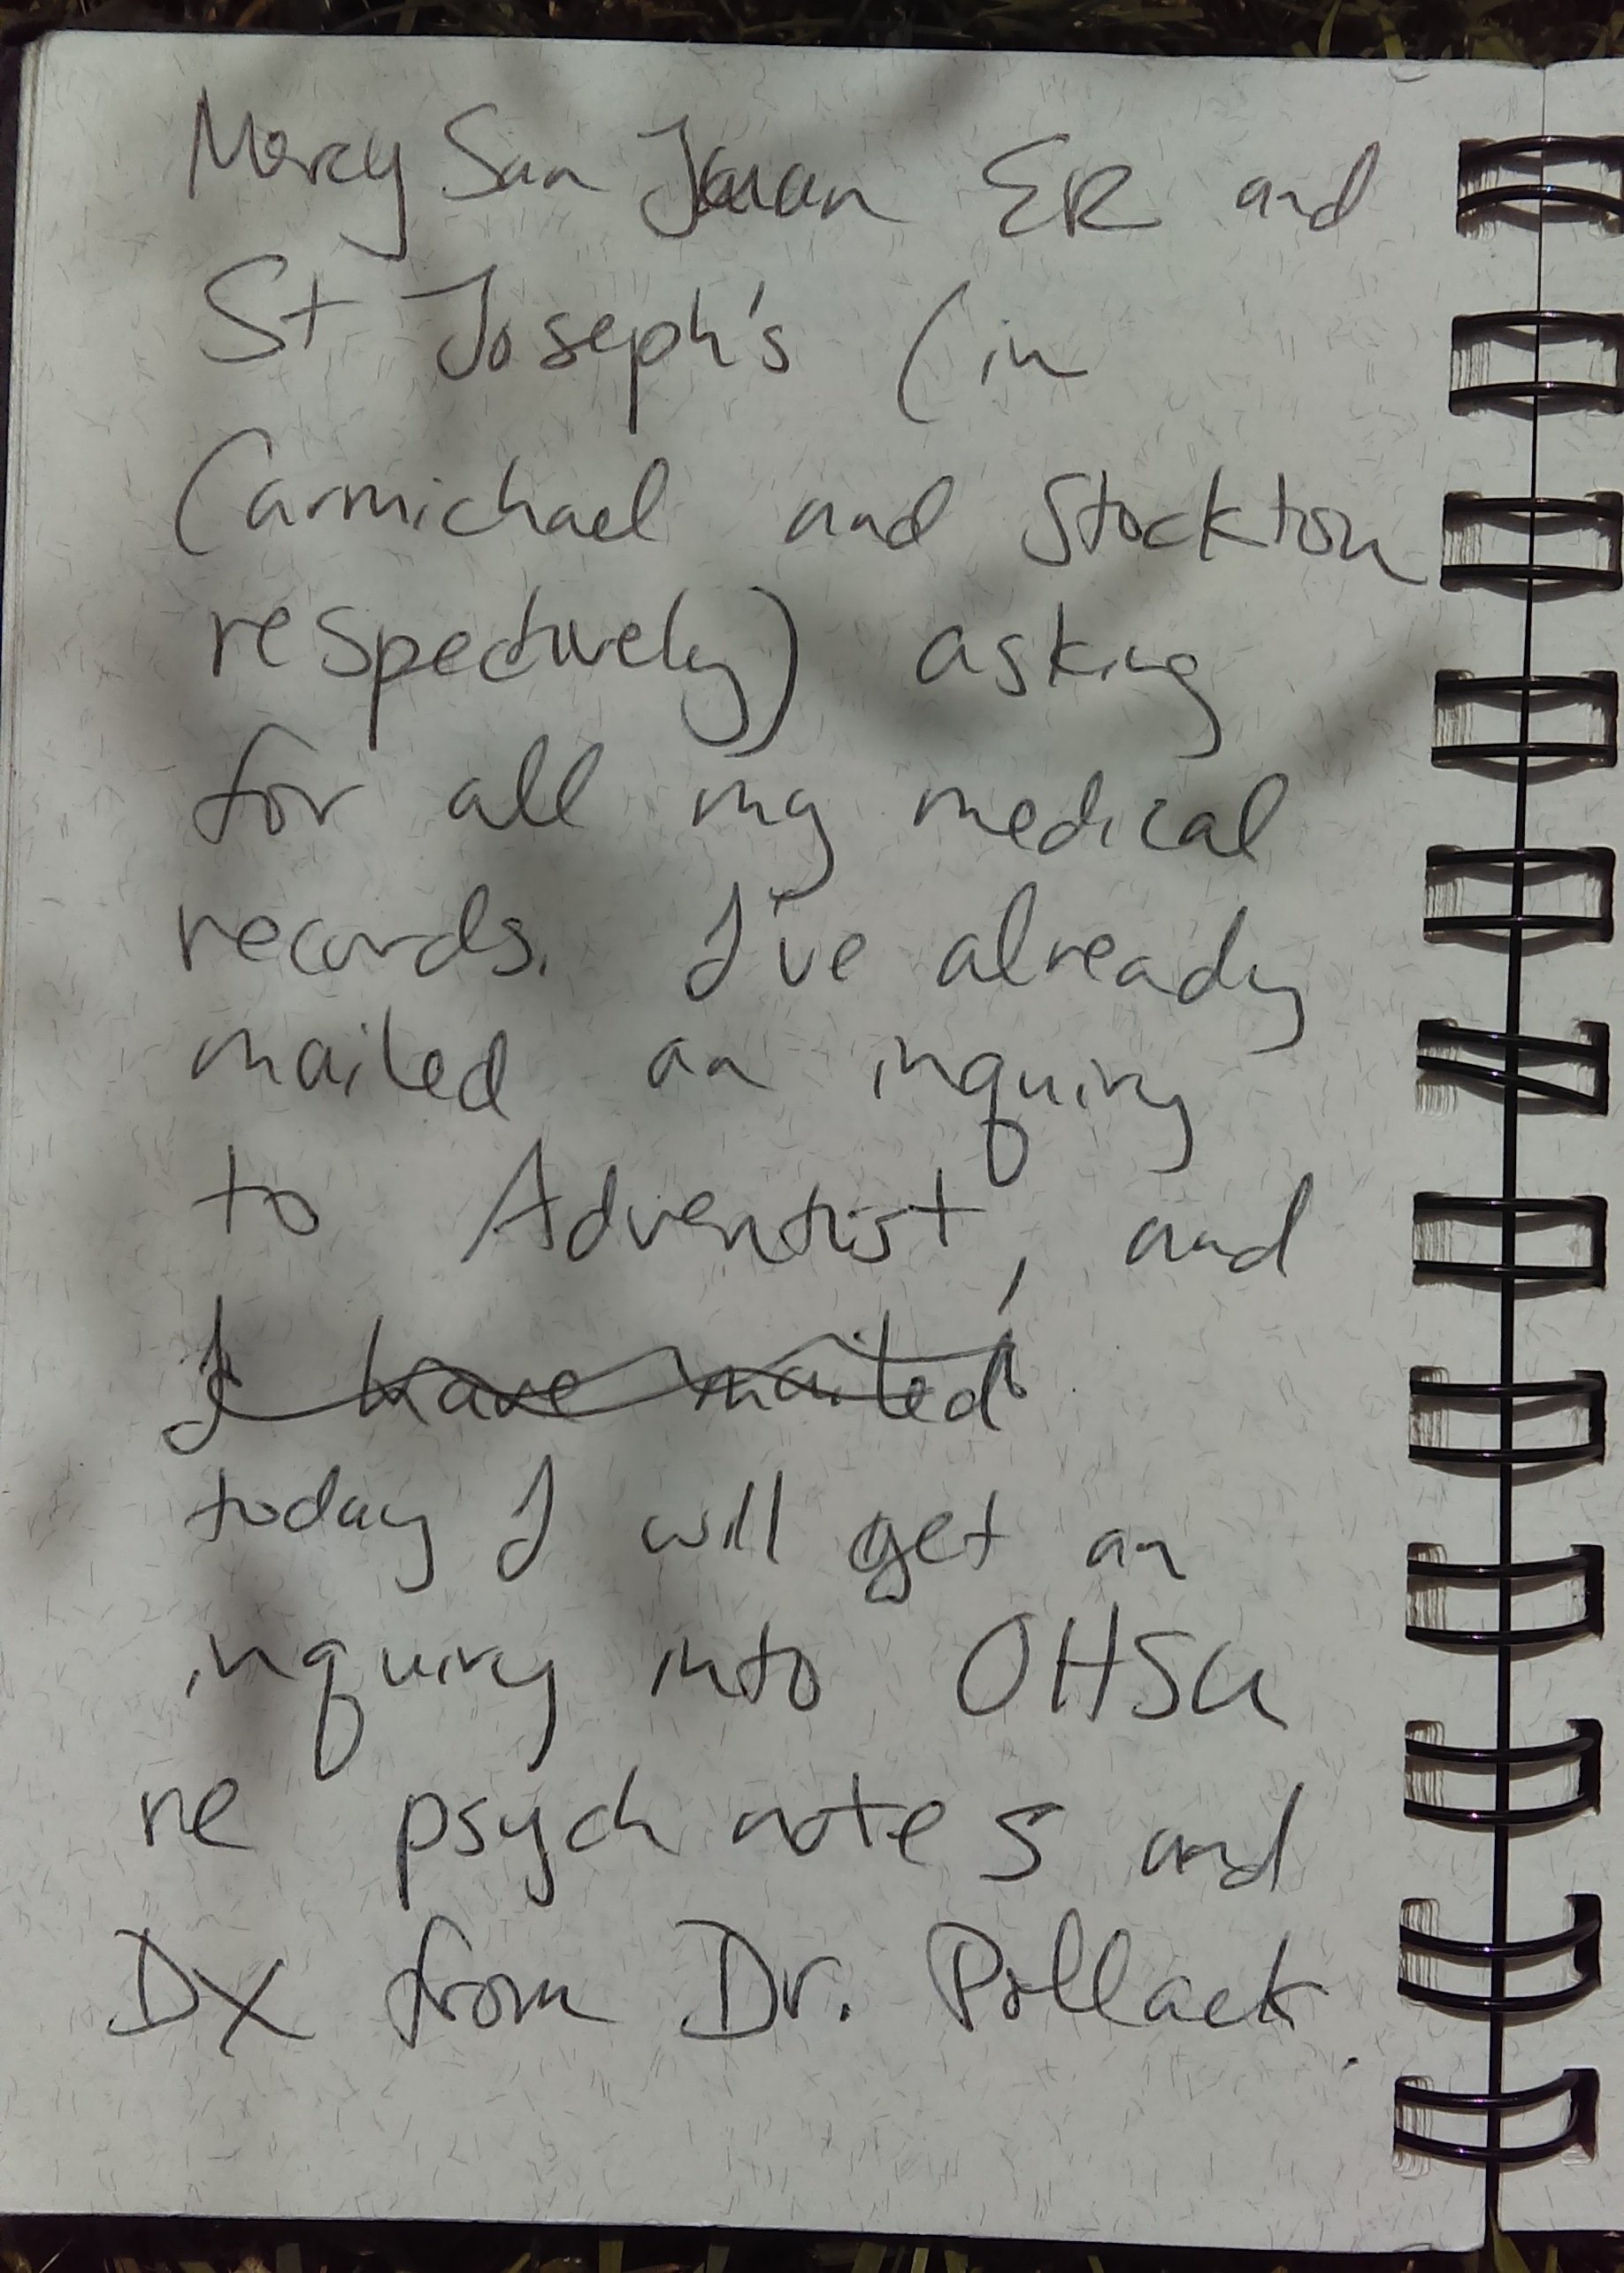 Mercy San Juan ER and
St Joseph's (in
Carmichael and Stockton
respectively) asking
for all my medical
records. I've already
mailed an inquiry
to Adventist, and
I have mailed
today I will get an
inquiry into OHSU
re psych notes and
DX from Dr. Pollack.